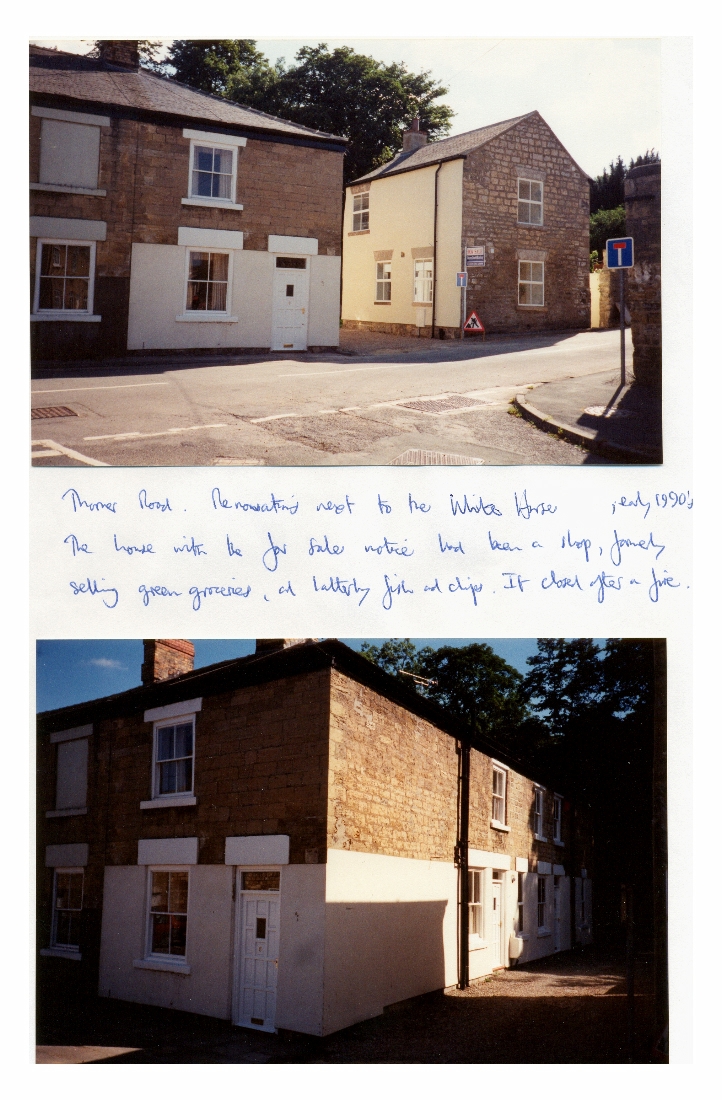 Thorner Road. Renovations next to the White Horse ; early 1990's
The house with the for sale notice had been a shop, formerly
selling green groceries, and latterly fish and chips. It closed after a fire.